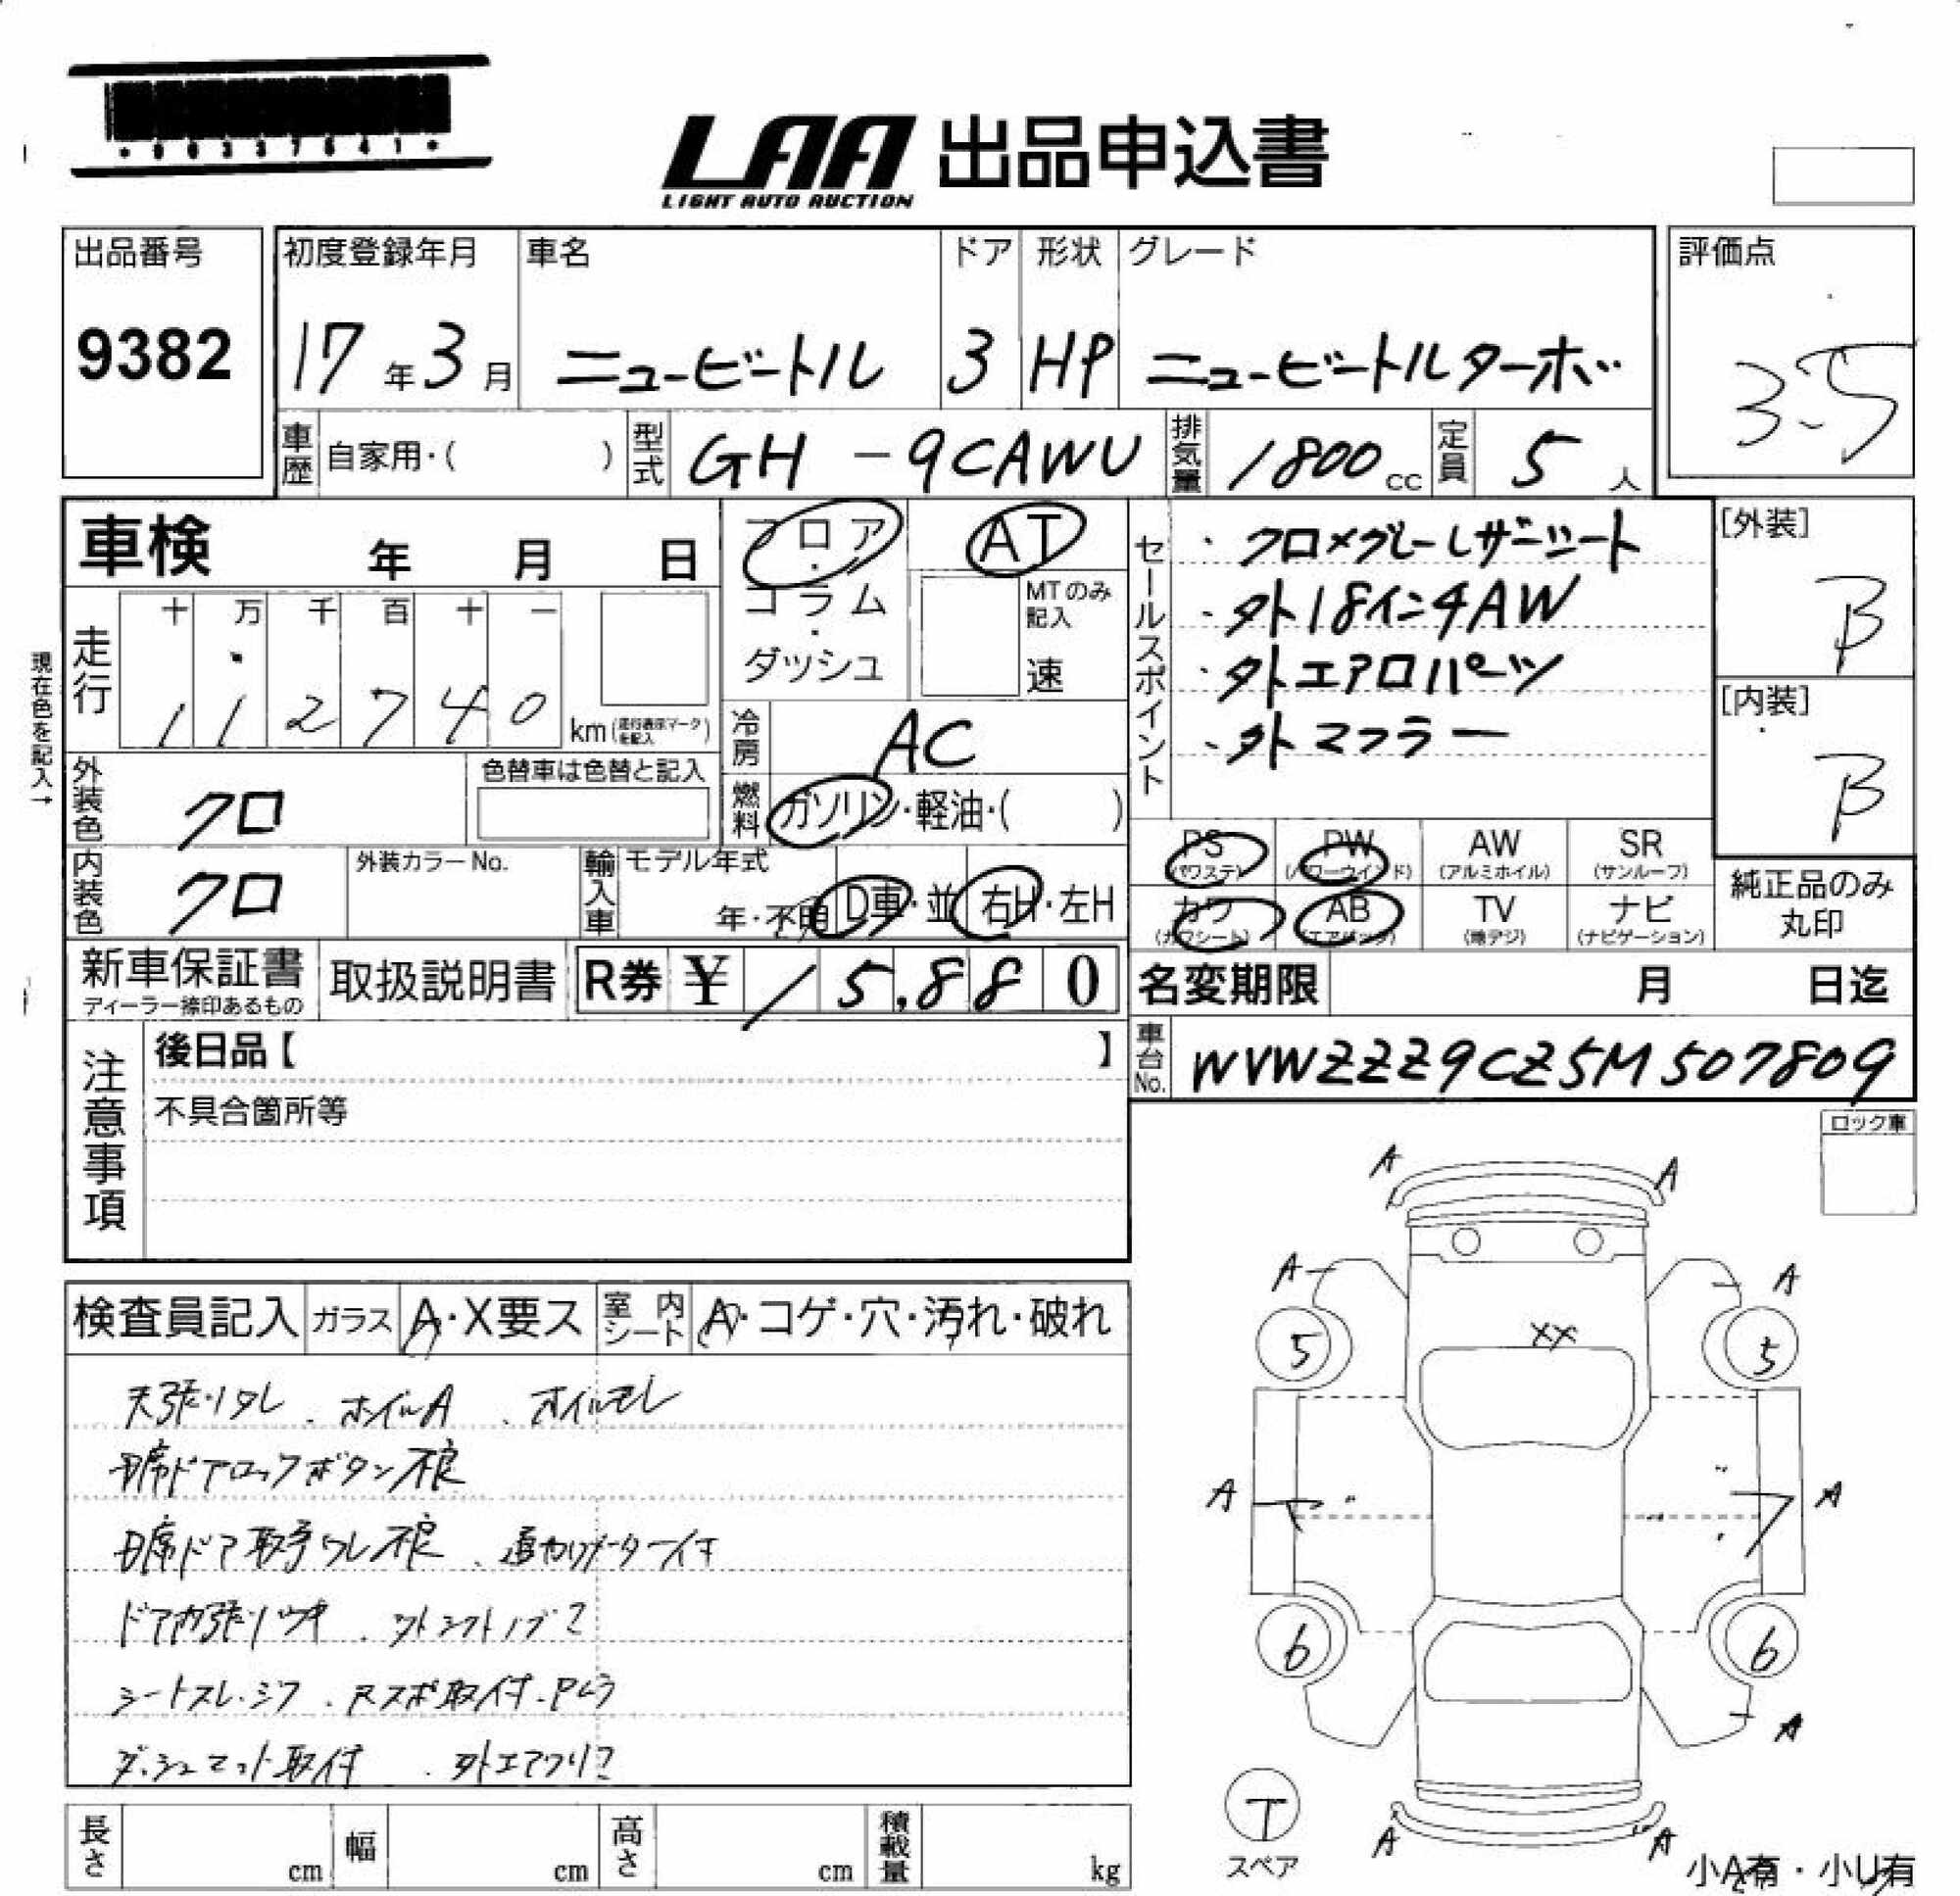 LAA 出品申込書
LIGHT AUTO AUCTION
出品番号
9382
初度登録年月
17年3月
車名
ニュービートル
ドア
3
形状
HP
グレード
ニュービートルターボ
評価点
3.5
車歴 自家用・( )
型式 GH-9CAWU
排気量 1800cc
定員 5人
車検 年 月 日
フロア・コラム・ダッシュ
AT
MTのみ記入
速
セールスポイント
・クロ×グレーレザーシート
・外18インチAW
・外エアロパーツ
・外マフラー
[外装]
B
[内装]
B
現在色を記入→
走行
十 万 千 百 十 一
1 1 2 7 4 0
km(走行表示マークを記入)
冷房 AC
燃料 ガソリン・軽油・( )
外装色 クロ
色替車は色替と記入
内装色 クロ
外装カラーNo.
輸入車
モデル年式
年・不明
D車・並
右H・左H
PS (パワステ)
PW (パワーウインド)
AW (アルミホイル)
SR (サンルーフ)
カワ (カワシート)
AB (エアバック)
TV (地デジ)
ナビ (ナビゲーション)
純正品のみ丸印
新車保証書
ディーラー捺印あるもの
取扱説明書
R券 ¥ 15,880
名変期限 月 日迄
車台No. WVWZZZ9CZ5M507809
注意事項
後日品【 】
不具合箇所等
ロック車
検査員記入
ガラス A・X要ス
室内シート A・コゲ・穴・汚れ・破れ
天張りタレ、ホイルA、オイルモレ
ドアロックボタン不良
ドア取手ワレ不良、追加メーター付
ドア内張りツキ、外シフトノブ
シートスレ・シワ
ダッシュマット取付、外エアクリ
A A
A A
5 5
XX
A A
6 6
A
T
スペア
A A
小A有・小U有
長さ cm
幅 cm
高さ cm
積載量 kg